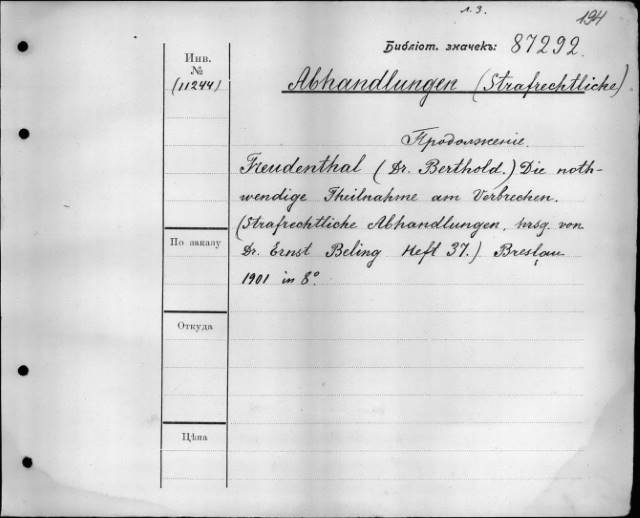 л. 3.
194
Библіот. значекъ: 87292.
Инв.
№
(11244)
Abhandlungen (Strafrechtliche)
Продолженіе.
Freudenthal (Dr. Berthold.) Die noth-
wendige Theilnahme am Verbrechen.
(Strafrechtliche Abhandlungen, hrsg. von
Dr. Ernst Beling Heft 37.) Breslau
1901 in 8º.
По заказу
Откуда
Цѣна